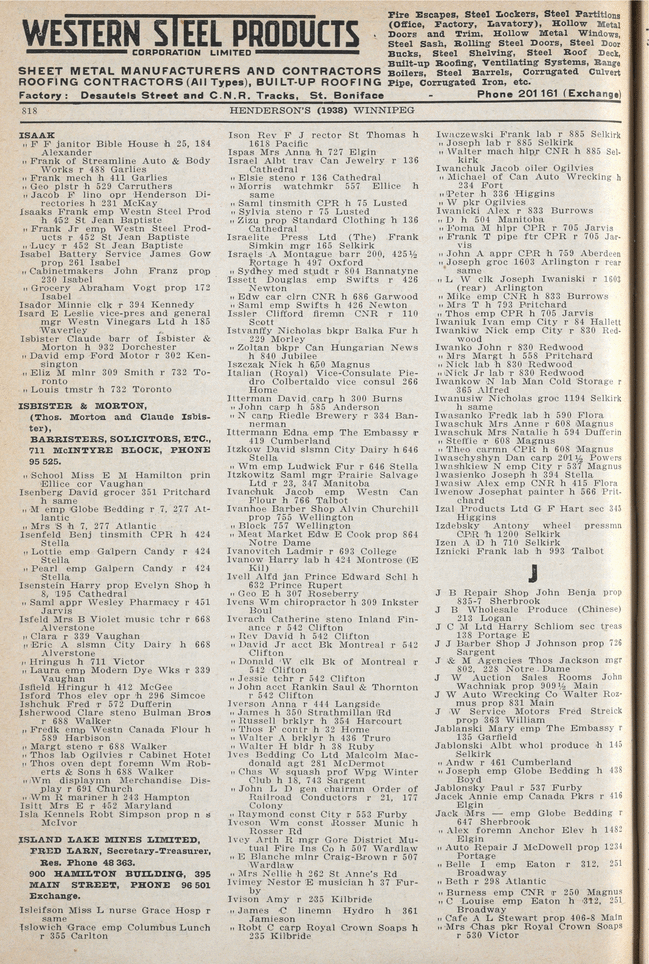 WESTERN STEEL PRODUCTS
CORPORATION LIMITED
SHEET METAL MANUFACTURERS AND CONTRACTORS
ROOFING CONTRACTORS (All Types), BUILT-UP ROOFING
Fire Escapes, Steel Lockers, Steel Partitions
(Office, Factory, Lavatory), Hollow Metal
Doors and Trim, Hollow Metal Windows,
Steel Sash, Rolling Steel Doors, Steel Door
Bucks, Steel Shelving, Steel Roof Deck,
Built-up Roofing, Ventilating Systems, Range
Boilers, Steel Barrels, Corrugated Culvert
Pipe, Corrugated Iron, etc.
Factory: Desautels Street and C.N.R. Tracks, St. Boniface - Phone 201 161 (Exchange)
818 HENDERSON'S (1938) WINNIPEG
ISAAK
„ F F janitor Bible House h 25, 184
Alexander
„ Frank of Streamline Auto & Body
Works r 488 Garlies
„ Frank mech h 411 Garlies
„ Geo plstr h 529 Carruthers
„ Jacob F lino opr Henderson Di-
rectories h 231 McKay
Isaaks Frank emp Westn Steel Prod
h 452 St Jean Baptiste
„ Frank Jr emp Westn Steel Prod-
ucts r 452 St Jean Baptiste
„ Lucy r 452 St Jean Baptiste
Isabel Battery Service James Gow
prop 261 Isabel
„ Cabinetmakers John Franz prop
230 Isabel
„ Grocery Abraham Vogt prop 172
Isabel
Isador Minnie clk r 394 Kennedy
Isard E Leslie vice-pres and general
mgr Westn Vinegars Ltd h 185
Waverley
Isbister Claude barr of Isbister &
Morton h 932 Dorchester
„ David emp Ford Motor r 302 Ken-
sington
„ Eliz M mlnr 309 Smith r 732 To-
ronto
„ Louis tmstr h 732 Toronto
ISBISTER & MORTON,
(Thos. Morton and Claude Isbis-
ter),
BARRISTERS, SOLICITORS, ETC.,
711 McINTYRE BLOCK, PHONE
95 525.
„ School Miss E M Hamilton prin
Ellice cor Vaughan
Isenberg David grocer 351 Pritchard
h same
„ M emp Globe Bedding r 7, 277 At-
lantic
„ Mrs S h 7, 277 Atlantic
Isenfeld Benj tinsmith CPR h 424
Stella
„ Lottie emp Galpern Candy r 424
Stella
„ Pearl emp Galpern Candy r 424
Stella
Isenstein Harry prop Evelyn Shop h
8, 195 Cathedral
„ Saml appr Wesley Pharmacy r 451
Jarvis
Isfeld Mrs B Violet music tchr r 668
Alverstone
„ Clara r 339 Vaughan
„ Eric A slsmn City Dairy h 668
Alverstone
„ Hringus h 711 Victor
„ Laura emp Modern Dye Wks r 339
Vaughan
Isfield Hringur h 412 McGee
Isford Thos elev opr h 296 Simcoe
Ishchuk Fred r 572 Dufferin
Isherwood Clare steno Bulman Bros
r 688 Walker
„ Fredk emp Westn Canada Flour h
589 Harbison
„ Margt steno r 688 Walker
„ Thos lab Ogilvies r Cabinet Hotel
„ Thos oven dept foremn Wm Rob-
erts & Sons h 688 Walker
„ Wm displaymn Merchandise Dis-
play r 691 Church
„ Wm R mariner h 243 Hampton
Isitt Mrs E r 452 Maryland
Isla Kennels Robt Simpson prop n s
McIvor
ISLAND LAKE MINES LIMITED,
FRED LARN, Secretary-Treasurer,
Res. Phone 48 363.
900 HAMILTON BUILDING, 395
MAIN STREET, PHONE 96 501
Exchange.
Isleifson Miss L nurse Grace Hosp r
same
Islowich Grace emp Columbus Lunch
r 355 Carlton
Ison Rev F J rector St Thomas h
1618 Pacific
Ispas Mrs Anna h 727 Elgin
Israel Albt trav Can Jewelry r 136
Cathedral
„ Elsie steno r 136 Cathedral
„ Morris watchmkr 557 Ellice h
same
„ Saml tinsmith CPR h 75 Lusted
„ Sylvia steno r 75 Lusted
„ Zizu prop Standard Clothing h 136
Cathedral
Israelite Press Ltd (The) Frank
Simkin mgr 165 Selkirk
Israels A Montague barr 200, 425½
Portage h 497 Oxford
„ Sydney med studt r 804 Bannatyne
Issett Douglas emp Swifts r 426
Newton
„ Edw car clrn CNR h 686 Garwood
„ Saml emp Swifts h 426 Newton
Issler Clifford firemn CNR r 110
Scott
Istvanffy Nicholas bkpr Balka Fur h
229 Morley
„ Zoltan bkpr Can Hungarian News
h 840 Jubilee
Iszczak Nick h 650 Magnus
Italian (Royal) Vice-Consulate Pie-
dro Colbertaldo vice consul 266
Home
Itterman David carp h 300 Burns
„ John carp h 585 Anderson
„ N carp Riedle Brewery r 334 Ban-
nerman
Ittermann Edna emp The Embassy r
419 Cumberland
Itzkow David slsmn City Dairy h 646
Stella
„ Wm emp Ludwick Fur r 646 Stella
Itzkowitz Saml mgr Prairie Salvage
Ltd r 23, 347 Manitoba
Ivanchuk Jacob emp Westn Can
Flour h 766 Talbot
Ivanhoe Barber Shop Alvin Churchill
prop 755 Wellington
„ Block 757 Wellington
„ Meat Market Edw E Cook prop 864
Notre Dame
Ivanovitch Ladmir r 693 College
Ivanow Harry lab h 424 Montrose (E
Kil)
Ivell Alfd jan Prince Edward Schl h
632 Prince Rupert
„ Geo E h 307 Roseberry
Ivens Wm chiropractor h 309 Inkster
Boul
Iverach Catherine steno Inland Fin-
ance r 542 Clifton
„ Rev David h 542 Clifton
„ David Jr acct Bk Montreal r 542
Clifton
„ Donald W clk Bk of Montreal r
542 Clifton
„ Jessie tchr r 542 Clifton
„ John acct Rankin Saul & Thornton
r 542 Clifton
Iverson Anna r 444 Langside
„ James h 350 Strathmillan Rd
„ Russell brklyr h 354 Harcourt
„ Thos F contr h 32 Home
„ Walter A brklyr h 436 Truro
„ Walter H bldr h 38 Ruby
Ives Bedding Co Ltd Malcolm Mac-
donald agt 281 McDermot
„ Chas W squash prof Wpg Winter
Club h 18, 743 Sargent
„ John L D gen chairmn Order of
Railroad Conductors r 21, 177
Colony
„ Raymond const City r 553 Furby
Iveson Wm const Rosser Munic h
Rosser Rd
Ivey Arth R mgr Gore District Mu-
tual Fire Ins Co h 507 Wardlaw
„ E Blanche mlnr Craig-Brown r 507
Wardlaw
„ Mrs Nellie h 262 St Anne's Rd
Ivimey Nestor E musician h 37 Fur-
by
Ivison Amy r 235 Kilbride
„ James C linemn Hydro h 361
Jamieson
„ Robt C carp Royal Crown Soaps h
235 Kilbride
Iwaczewski Frank lab r 885 Selkirk
„ Joseph lab r 885 Selkirk
„ Walter mach hlpr CNR h 885 Sel-
kirk
Iwanchuk Jacob oiler Ogilvies
„ Michael of Can Auto Wrecking h
234 Fort
„ Peter h 336 Higgins
„ W pkr Ogilvies
Iwanicki Alex r 833 Burrows
„ D h 504 Manitoba
„ Foma M hlpr CPR r 705 Jarvis
„ Frank T pipe ftr CPR r 705 Jar-
vis
„ John A appr CPR h 759 Aberdeen
„ Joseph groc 1603 Arlington r rear
same
„ L W clk Joseph Iwaniski r 1603
(rear) Arlington
„ Mike emp CNR h 833 Burrows
„ Mrs T h 793 Pritchard
„ Thos emp CPR h 705 Jarvis
Iwaniuk Ivan emp City r 84 Hallett
Iwankiw Nick emp City r 830 Red-
wood
Iwanko John r 830 Redwood
„ Mrs Margt h 558 Pritchard
„ Nick lab h 830 Redwood
„ Nick Jr lab r 830 Redwood
Iwankow N lab Man Cold Storage r
365 Alfred
Iwanusiw Nicholas groc 1194 Selkirk
h same
Iwasanko Fredk lab h 590 Flora
Iwaschuk Mrs Anne r 608 Magnus
Iwaschuk Mrs Natalie h 594 Dufferin
„ Steffie r 608 Magnus
„ Theo carmn CPR h 608 Magnus
Iwaschyshyn Dan carp 201½ Powers
Iwashkiew N emp City r 537 Magnus
Iwasienko Joseph h 394 Stella
Iwasiw Alex emp CNR h 415 Flora
Iwenow Josephat painter h 566 Prit-
chard
Izal Products Ltd G F Hart sec 345
Higgins
Izdebsky Antony wheel pressmn
CPR h 1200 Selkirk
Izen A D h 710 Selkirk
Iznicki Frank lab h 993 Talbot
J
J B Repair Shop John Benja prop
835-7 Sherbrook
J B Wholesale Produce (Chinese)
213 Logan
J C M Ltd Harry Schliom sec treas
138 Portage E
J J Barber Shop J Johnson prop 726
Sargent
J & M Agencies Thos Jackson mgr
802, 228 Notre Dame
J W Auction Sales Rooms John
Wachniak prop 909½ Main
J W Auto Wrecking Co Walter Roz-
mus prop 831 Main
J W Service Motors Fred Streick
prop 363 William
Jablanski Mary emp The Embassy r
135 Garfield
Jablonski Albt whol produce h 145
Selkirk
„ Andw r 461 Cumberland
„ Joseph emp Globe Bedding r 438
Boyd
Jablonsky Paul r 537 Furby
Jacek Annie emp Canada Pkrs r 416
Elgin
Jack Mrs — emp Globe Bedding r
647 Sherbrook
„ Alex foremn Anchor Elev h 1482
Elgin
„ Auto Repair J McDowell prop 1234
Portage
„ Belle I emp Eaton r 312, 251
Broadway
„ Beth r 298 Atlantic
„ Burness emp CNR r 250 Magnus
„ C Louise emp Eaton h 312, 251
Broadway
„ Cafe A L Stewart prop 406-8 Main
„ Mrs Chas pkr Royal Crown Soaps
r 530 Victor